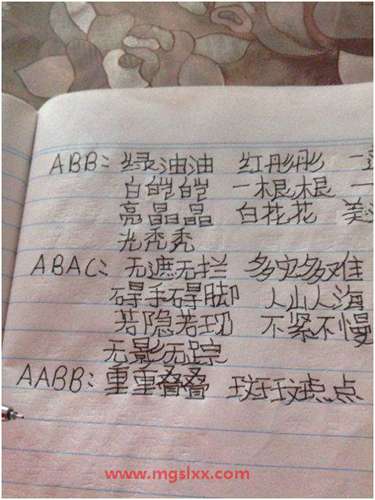 ABB: 绿油油 红彤彤 一
白皑皑 一根根 一
亮晶晶 白花花 美
光秃秃
ABAC: 无遮无拦 多灾多难
碍手碍脚 人山人海
若隐若现 不紧不慢
无影无踪
AABB: 重重叠叠 斑斑点点
www.mgslxx.com